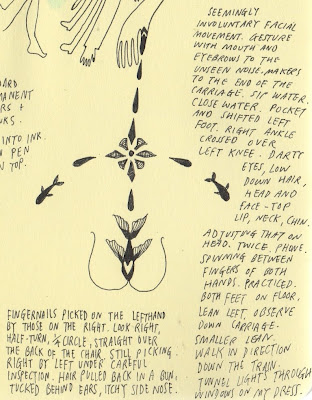 SEEMINGLY
INVOLUNTARY FACIAL
MOVEMENT. GESTURE
WITH MOUTH AND
EYEBROWS TO THE
UNSEEN NOISE-MAKERS
TO THE END OF THE
CARRIAGE. SIP WATER,
CLOSE WATER. POCKET
AND SHIFTED LEFT
FOOT. RIGHT ANKLE
CROSSED OVER
LEFT KNEE. DARTY
EYES, LOW
DOWN HAIR,
HEAD AND
FACE - TOP
LIP, NECK, CHIN.
ADJUSTING THAT ON
HEAD. TWICE. PHONE.
SPINNING BETWEEN
FINGERS OF BOTH
HANDS. PRACTICED.
BOTH FEET ON FLOOR.
LEAN LEFT. OBSERVE
DOWN CARRIAGE.
SMALLER LEAN.
WALK IN DIRECTION
DOWN THE TRAIN.
TUNNEL LIGHTS THROUGH
WINDOWS ON MY DRESS.
ARD
MANENT
RS +
RKS.
INTO INK.
N PEN
N TOP.
FINGERNAILS PICKED ON THE LEFTHAND
BY THOSE ON THE RIGHT. LOOK RIGHT,
HALF-TURN, ¼ CIRCLE, STRAIGHT OVER
THE BACK OF THE CHAIR. STILL PICKING.
RIGHT BY LEFT UNDER CAREFUL
INSPECTION. HAIR PULLED BACK IN A BUN,
TUCKED BEHIND EARS, ITCHY SIDE NOSE.